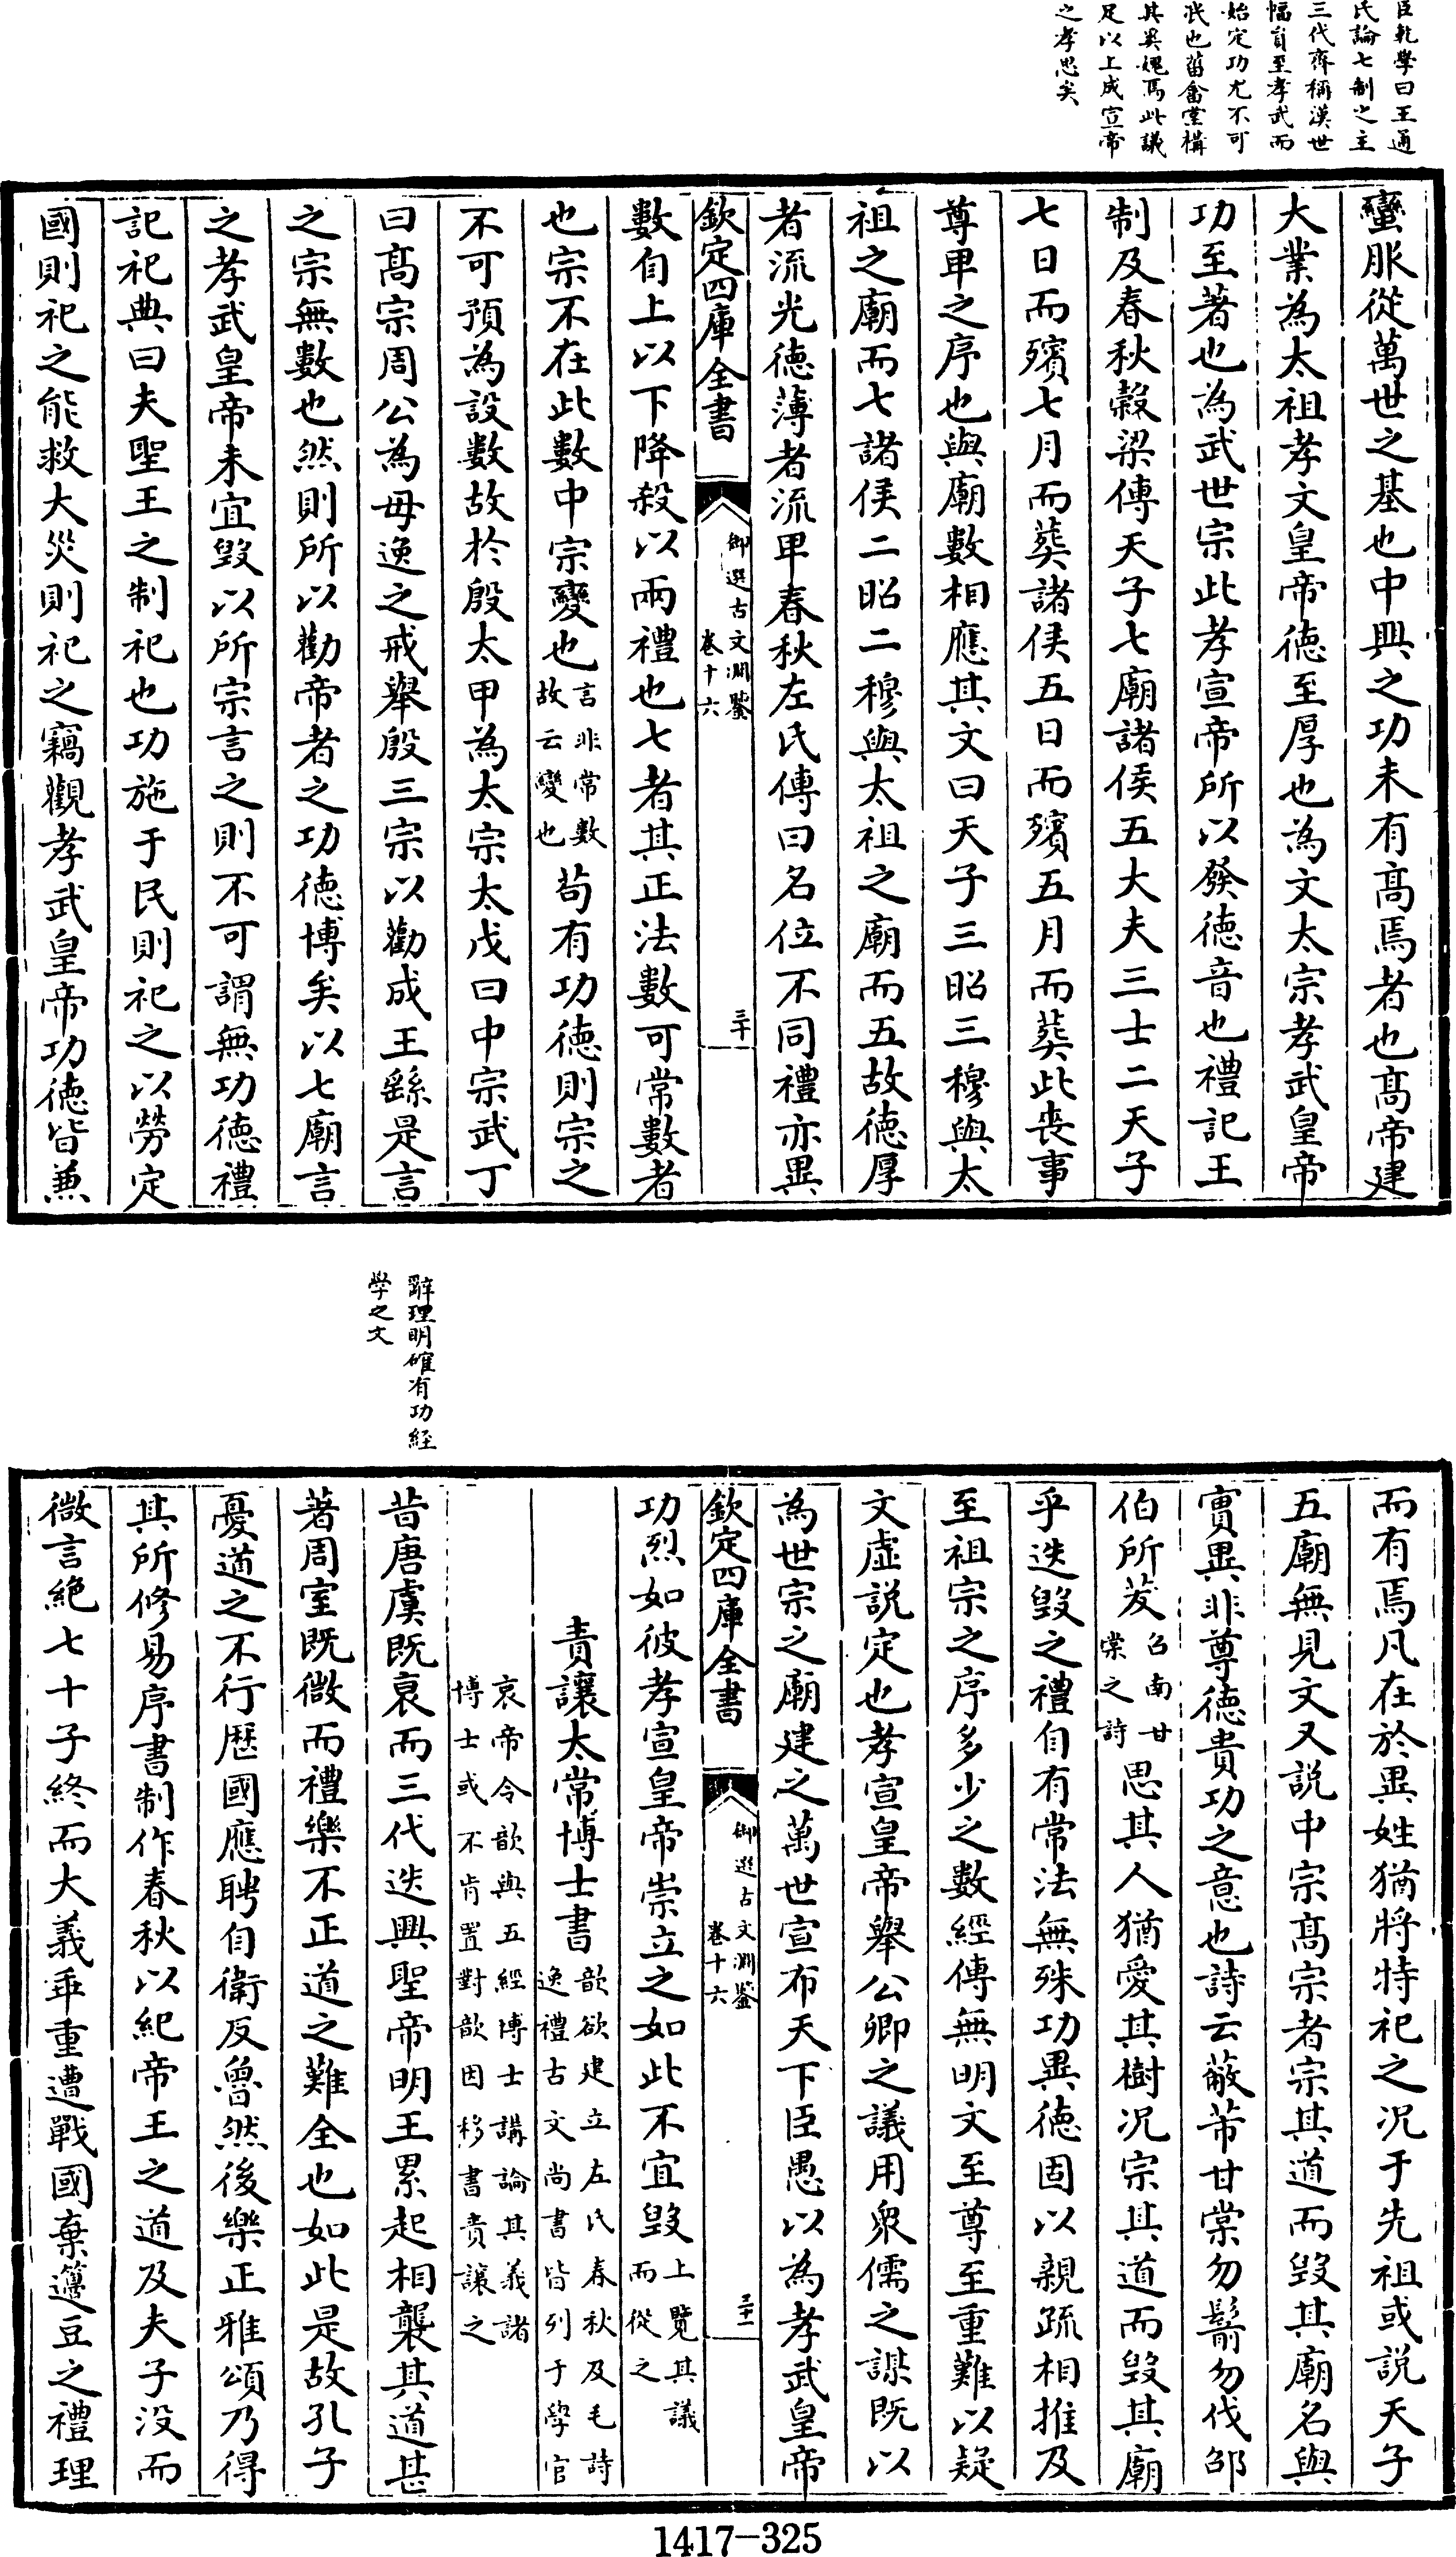 臣乾學曰王通
氏論七制之主
三代齊稱漢世
幅員至孝武而
始定功尤不可
泯也菑畬堂構
其異媿焉此議
足以上成宣帝
之孝思矣
蠻服從萬世之基也中興之功未有髙焉者也髙帝建
大業為太祖孝文皇帝徳至厚也為文太宗孝武皇帝
功至著也為武世宗此孝宣帝所以發徳音也禮記王
制及春秋榖梁傳天子七廟諸侯五大夫三士二天子
七日而殯七月而葬諸侯五日而殯五月而葬此喪事
尊卑之序也與廟數相應其文曰天子三昭三穆與太
祖之廟而七諸侯二昭二穆與太祖之廟而五故徳厚
者流光徳薄者流卑春秋左氏傳曰名位不同禮亦異
欽定四庫全書
御選古文淵鑒
卷十六
三十
數自上以下降殺以兩禮也七者其正法數可常數者
也宗不在此數中宗變也言非常數故云變也苟有功徳則宗之
不可預為設數故於殷太甲為太宗太戊曰中宗武丁
曰髙宗周公為毋逸之戒舉殷三宗以勸成王繇是言
之宗無數也然則所以勸帝者之功徳博矣以七廟言
之孝武皇帝未宜毀以所宗言之則不可謂無功徳禮
記祀典曰夫聖王之制祀也功施于民則祀之以勞定
國則祀之能救大災則祀之竊觀孝武皇帝功徳皆兼
辭理明確有功經
學之文
而有焉凡在於異姓猶將特祀之况于先祖或説天子
五廟無見文又説中宗髙宗者宗其道而毀其廟名與
實異非尊徳貴功之意也詩云蔽芾甘棠勿鬋勿伐邵
伯所茇召南甘棠之詩思其人猶愛其樹况宗其道而毀其廟
乎迭毀之禮自有常法無殊功異徳固以親疏相推及
至祖宗之序多少之數經傳無明文至尊至重難以疑
文虚説定也孝宣皇帝舉公卿之議用衆儒之謀既以
為世宗之廟建之萬世宣布天下臣愚以為孝武皇帝
欽定四庫全書
御選古文淵鑒
卷十六
三十一
功烈如彼孝宣皇帝崇立之如此不宜毀上覽其議而從之
責讓太常博士書歆欲建立左氏春秋及毛詩逸禮古文尚書皆列于學官
哀帝令歆與五經博士講論其義諸博士或不肯置對歆因移書責讓之
昔唐虞既衰而三代迭興聖帝明王累起相襲其道甚
著周室既微而禮樂不正道之難全也如此是故孔子
憂道之不行歴國應聘自衛反魯然後樂正雅頌乃得
其所修易序書制作春秋以紀帝王之道及夫子没而
微言絶七十子終而大義乖重遭戰國棄籩豆之禮理
1417-325